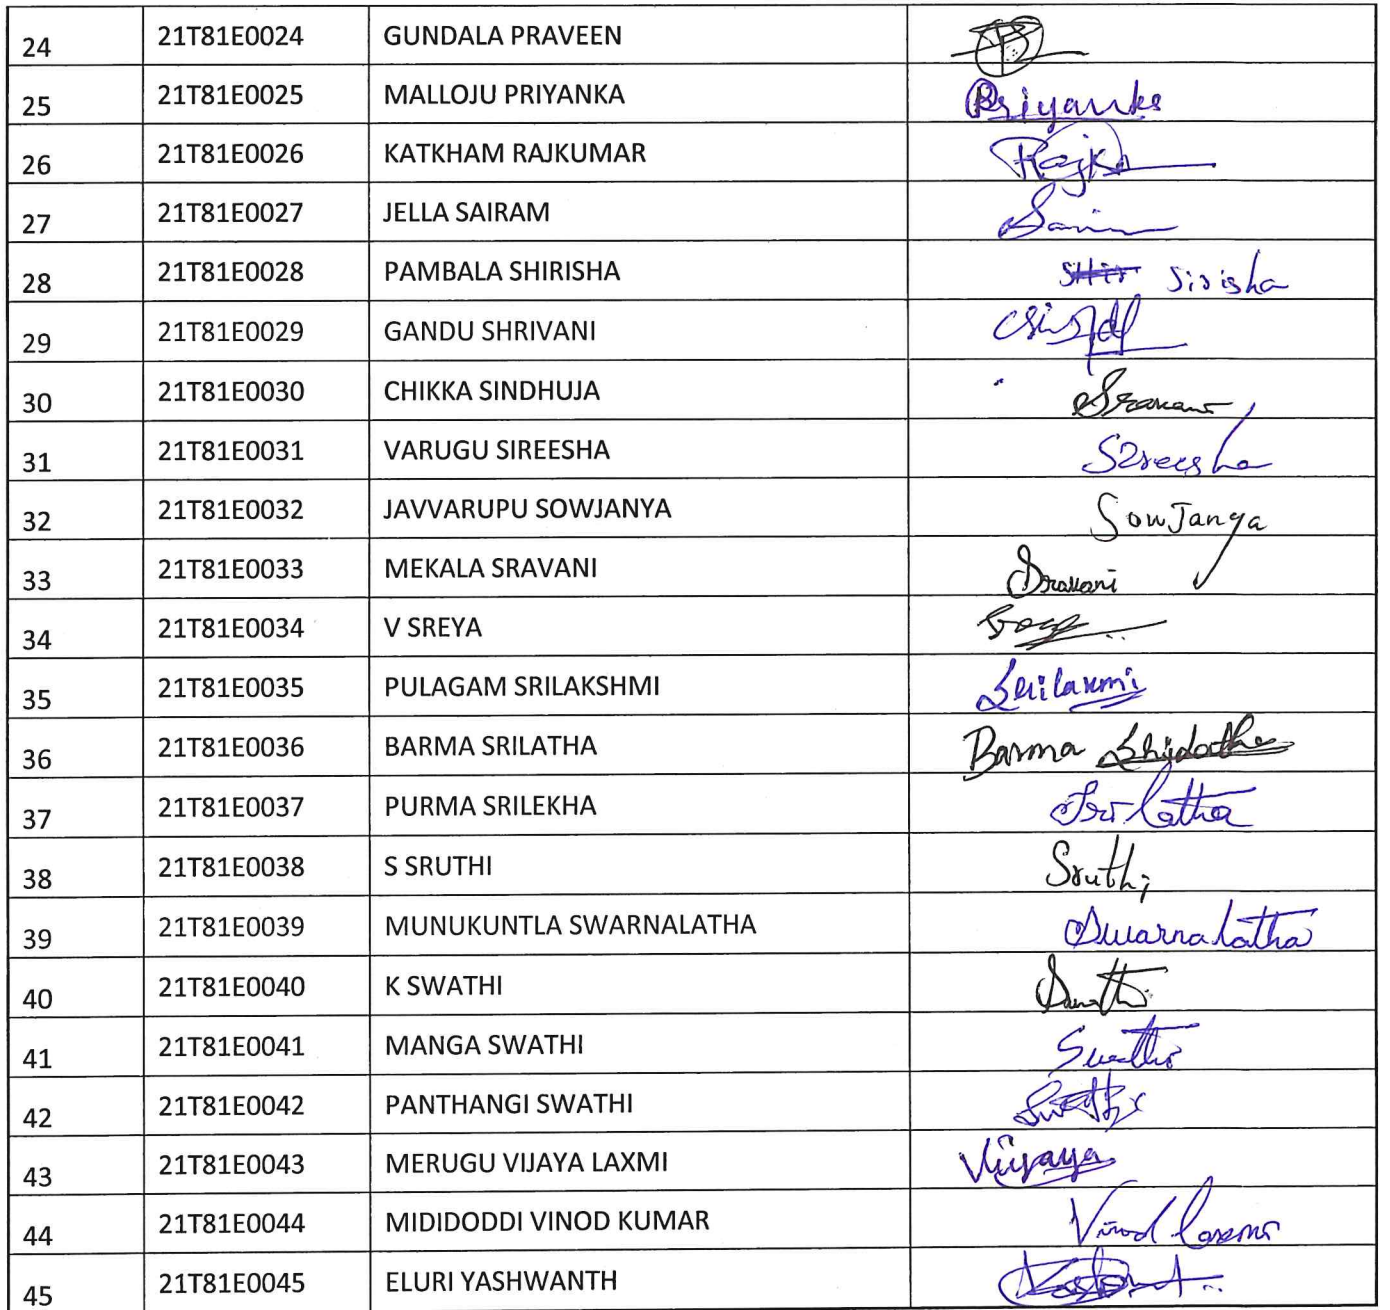 24 21T81E0024 GUNDALA PRAVEEN
25 21T81E0025 MALLOJU PRIYANKA Priyanka
26 21T81E0026 KATKHAM RAJKUMAR
27 21T81E0027 JELLA SAIRAM
28 21T81E0028 PAMBALA SHIRISHA Sirisha
29 21T81E0029 GANDU SHRIVANI
30 21T81E0030 CHIKKA SINDHUJA
31 21T81E0031 VARUGU SIREESHA Sireesha
32 21T81E0032 JAVVARUPU SOWJANYA SowJanya
33 21T81E0033 MEKALA SRAVANI Sravani
34 21T81E0034 V SREYA
35 21T81E0035 PULAGAM SRILAKSHMI Srilaxmi
36 21T81E0036 BARMA SRILATHA Barma
37 21T81E0037 PURMA SRILEKHA Srilatha
38 21T81E0038 S SRUTHI Sruthi
39 21T81E0039 MUNUKUNTLA SWARNALATHA Swarnalatha
40 21T81E0040 K SWATHI Swathi
41 21T81E0041 MANGA SWATHI Swathi
42 21T81E0042 PANTHANGI SWATHI Swathi
43 21T81E0043 MERUGU VIJAYA LAXMI Vijaya
44 21T81E0044 MIDIDODDI VINOD KUMAR Vinod
45 21T81E0045 ELURI YASHWANTH